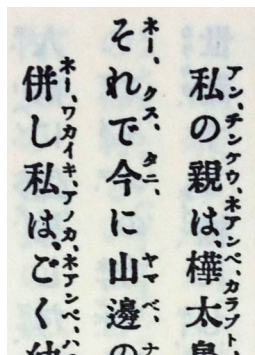 アン、チンケウ、ネアンペ、カラプト
私の親は、樺太島
ネー、クス、タニ、ヤマベ、ナ
それで今に山邊の
ネー、ワカイキ、アノカ、ネアンペ、ハ
併し私は、ごく幼